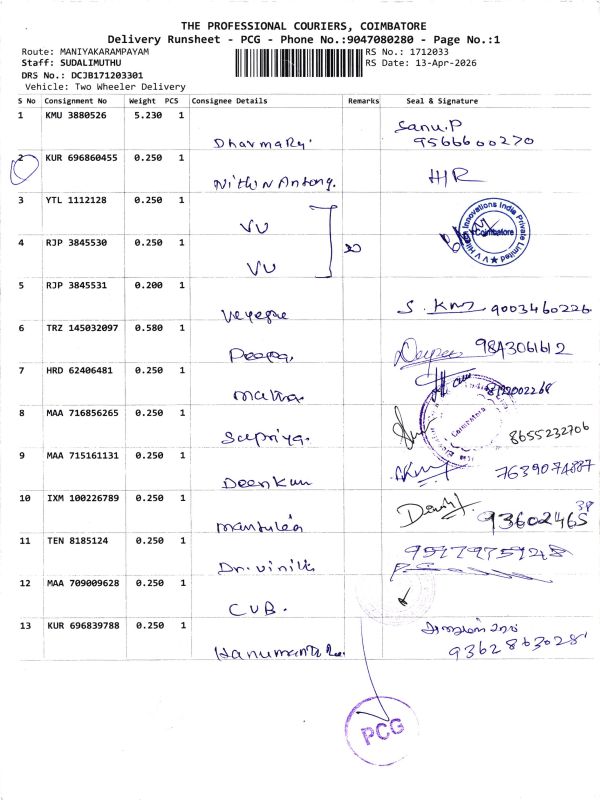 THE PROFESSIONAL COURIERS, COIMBATORE
Delivery Runsheet - PCG - Phone No.:9047080280 - Page No.:1
Route: MANIYAKARAMPAYAM
RS No.: 1712033
Staff: SUDALIMUTHU
RS Date: 13-Apr-2026
DRS No.: DCJB171203301
Vehicle: Two Wheeler Delivery
S No Consignment No Weight PCS Consignee Details Remarks Seal & Signature
1 KMU 3880526 5.230 1
Sanu.P
9566600270
2 KUR 696860455 0.250 1
Nithin Antony. H/R
3 YTL 1112128 0.250 1
VV
Innovations India Private Limited
Coimbatore
4 RJP 3845530 0.250 1
VV
5 RJP 3845531 0.200 1
9003460226
6 TRZ 145032097 0.580 1
Deepa, 9843061612
7 HRD 62406481 0.250 1
Coimbatore
8 MAA 716856265 0.250 1
Supriya. 8655232706
9 MAA 715161131 0.250 1
7639074887
10 IXM 100226789 0.250 1
11 TEN 8185124 0.250 1
12 MAA 709009628 0.250 1
CUB.
13 KUR 696839788 0.250 1
9362863028
PCG